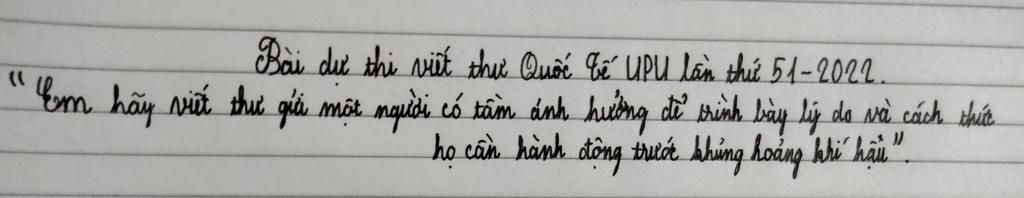 Bài dự thi viết thư Quốc Tế UPU lần thứ 51-2022.
"Em hãy viết thư gửi một người có tầm ảnh hưởng để trình bày lý do và cách thức
họ cần hành động trước khủng hoảng khí hậu".